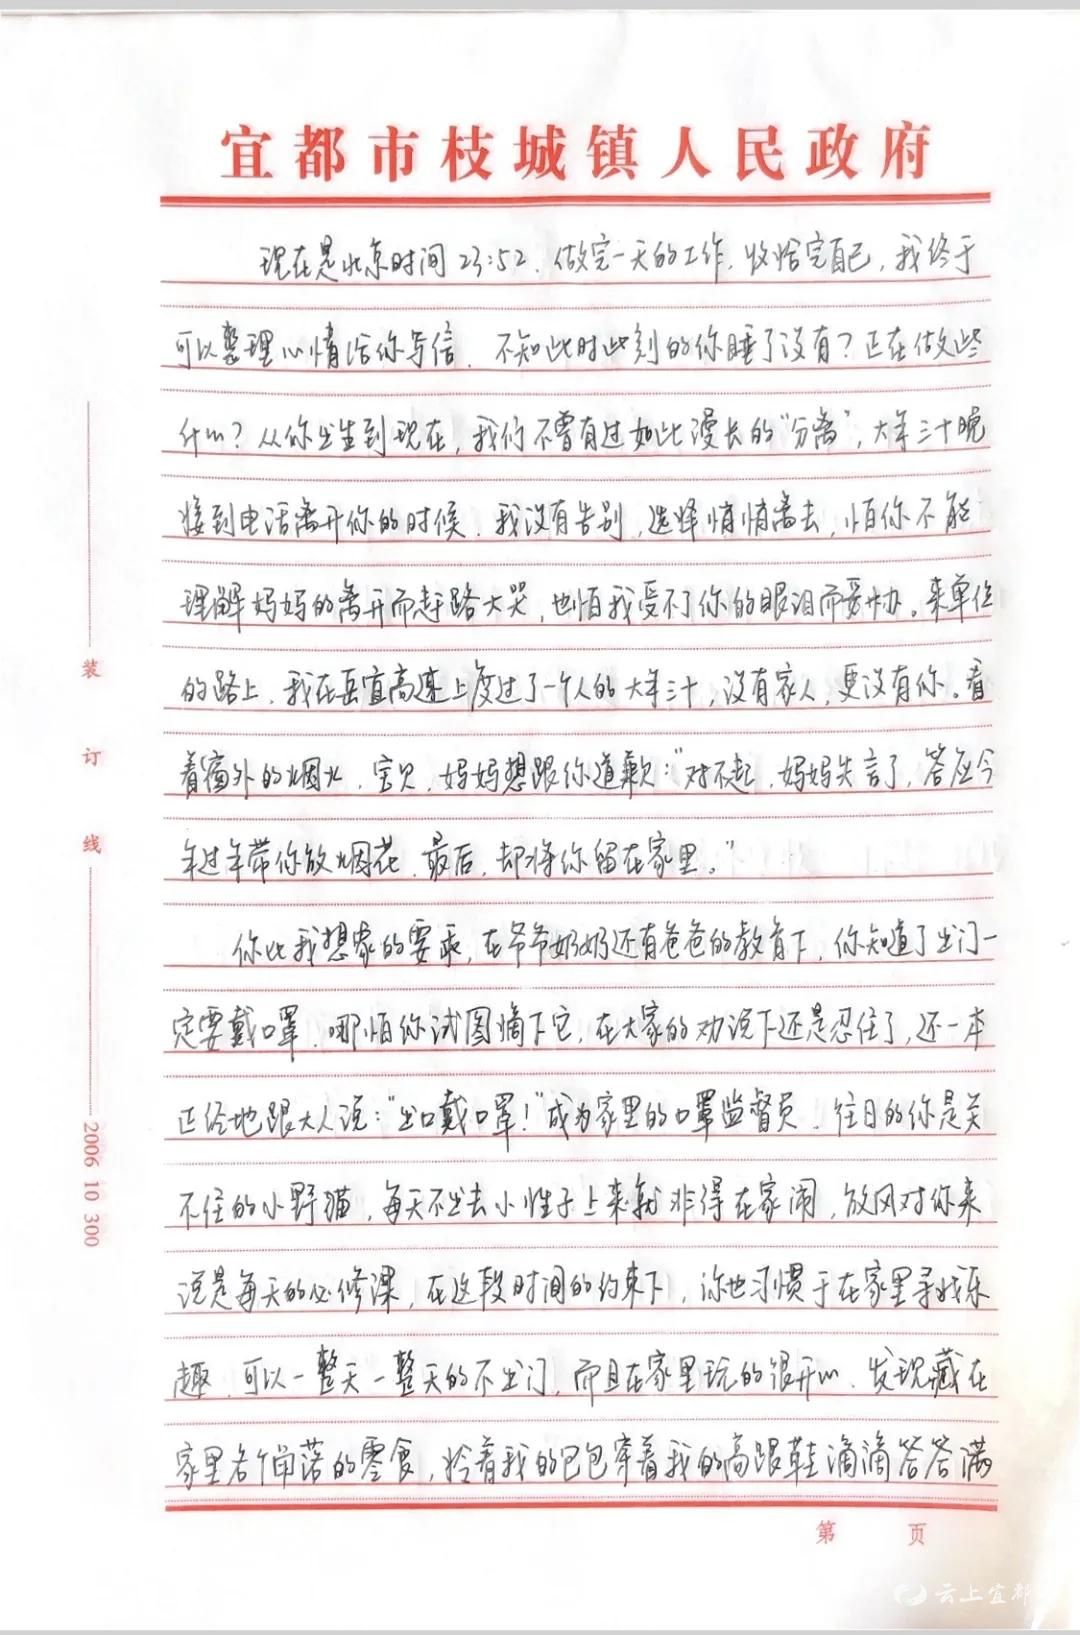 宜都市枝城镇人民政府
现在是北京时间23:52、做完一天的工作,收拾完自己,我终于
可以整理心情给你写信、不知此时此刻的你睡了没有?正在做些
什么?从你出生到现在,我们不曾有过如此漫长的“分离”,大年三十晚
接到电话离开你的时候、我没有告别,选择悄悄离去,怕你不能
理解妈妈的离开而赶路大哭,也怕我受不了你的眼泪而妥协。来单位
的路上,我在岳宜高速上度过了一个人的大年三十,没有家人,更没有你。看
着窗外的烟火,宝贝,妈妈想跟你道歉:“对不起,妈妈失言了,答应今
年过年带你放烟花、最后,却将你留在家里。”
你比我想象的要乖,在爷爷奶奶还有爸爸的教育下,你知道了出门一
定要戴口罩、哪怕你试图摘下它,在大家的劝说下还是忍住了,还一本
正经地跟大人说:“出口戴口罩!”成为家里的口罩监督员.往日的你是关
不住的小野猫,每天不出去小性子上来就非得在家闹,放风对你来
说是每天的必修课,在这段时间的约束下,你也习惯于在家里寻找乐
趣、可以一整天一整天的不出门,而且在家里玩的很开心、发现藏在
家里各个角落的零食,拎着我的包包穿着我的高跟鞋滴滴答答满
装
订
线
2006 10 300
第 页
云上宜都